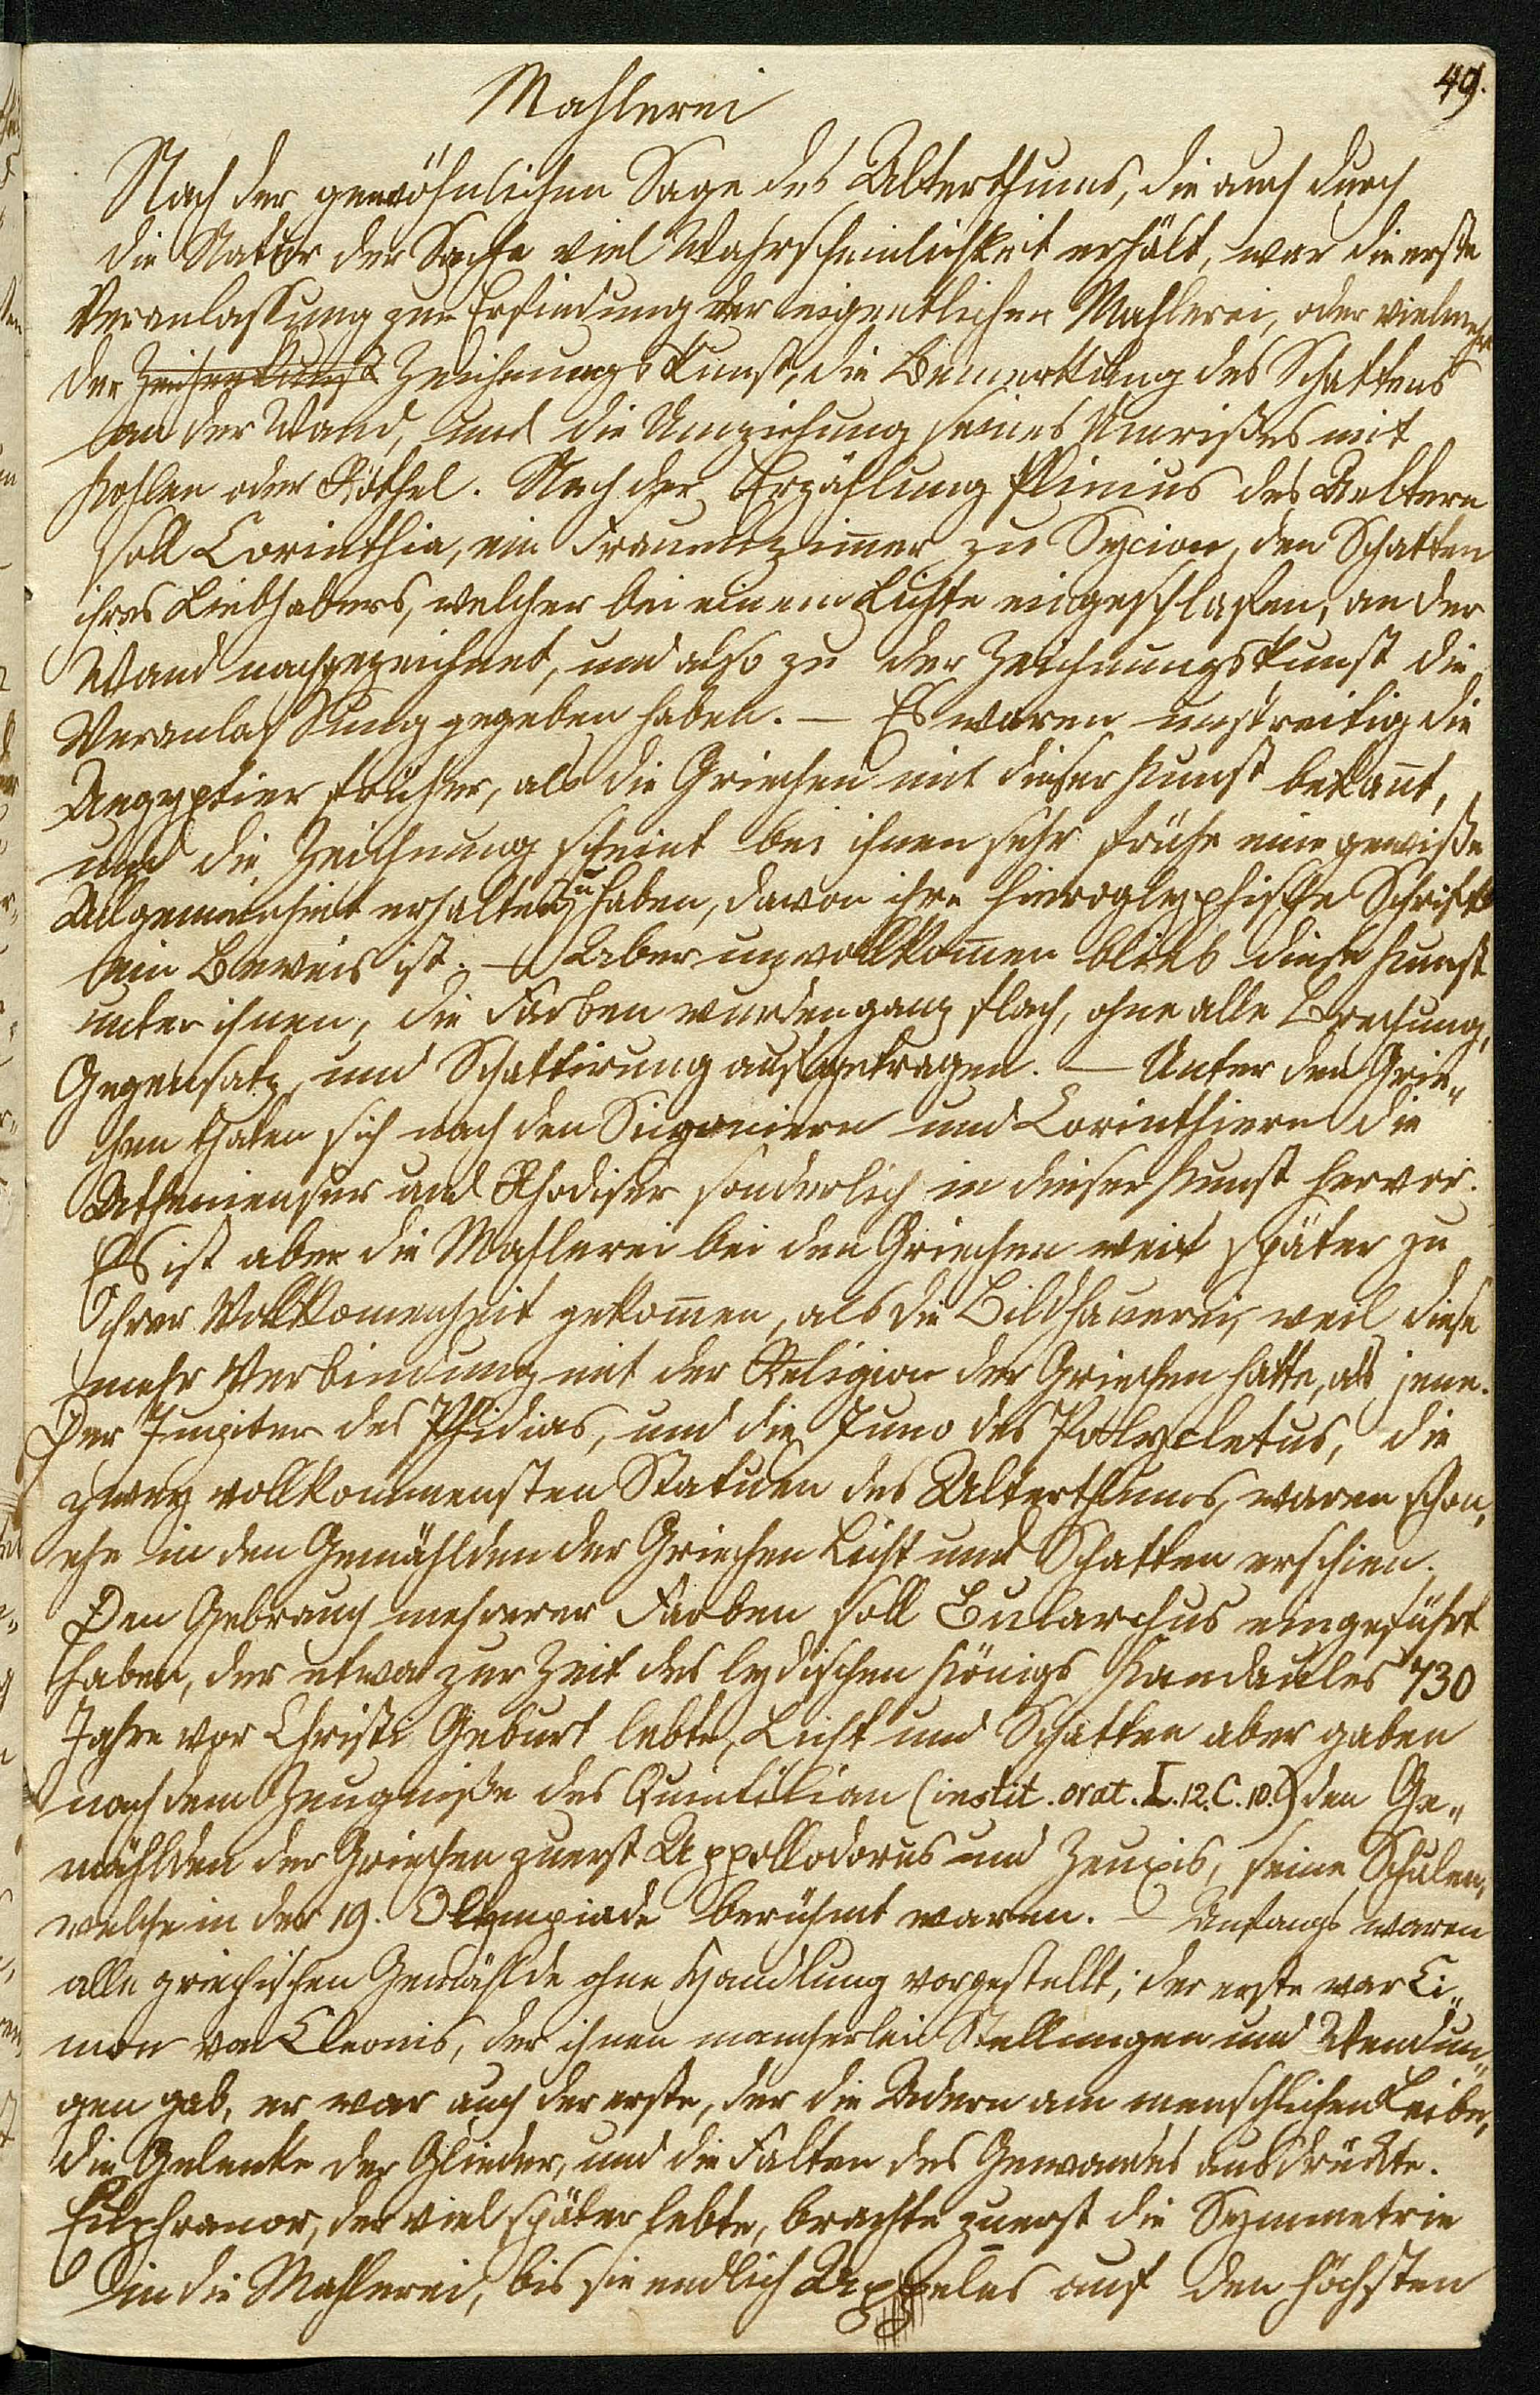 49.
Mahlerei
Nach der gewöhnlichen Sage des Alterthums, die auch durch
die Natur der Sache viel Wahrscheinlichkeit erhält, war die erste
Veranlassung zur Erfindung der eigentlichen Mahlerei, oder vielmehr
der Zeichenkunst Zeichnungskunst, die Bemerkung des Schattens
an der Wand, und die Umziehung seines Umrißes mit
Kohlen oder Röthel. Nach der Erzählung Plinius des Aeltern
soll Corinthia, ein Frauenzimer zu Sycion, den Schatten
ihres Liebhabers, welcher bei einem Lichte eingeschlafen, an der
Wand nachgezeichnet, und also zu der Zeichnungskunst die
Veranlassung gegeben haben. — Es waren unstreitig die
Aegyptier früher, als die Griechen mit dieser Kunst bekañt,
und die Zeichnung scheint bei ihnen sehr frühe eine gewiße
Allgemeinheit erhalten zu haben, davon ihre hieroglyphische Schrift
ein Beweis ist. — Aber unvollkom̄en blieb diese Kunst
unter ihnen, die Farben wurden ganz flach, ohne alle Brechung,
Gegensatz und Schattirung aufgetragen. — Unter den Grie„
chen thaten sich nach den Sicyoniern und Corinthiern die
Athenienser und Rhodiser sonderlich in dieser Kunst hervor.
Es ist aber die Mahlerei bei den Griechen weit später zu
ihrer Vollkomenheit gekom̄en, als die Bildhauerei, weil diese
mehr Verbindung mit der Religion der Griechen hatte, als jene.
Der Jupiter des Phidias, und die Juno des Polycletus, die
zwey vollkommensten Statuen des Alterthums, waren schon,
ehe in den Gemählden der Griechen Licht und Schatten erschien.
Den Gebrauch mehrerer Farben soll Bularchus eingeführt
haben, der etwa zur Zeit des lydischen Königs Kandaules 730
Jahre vor Christi Geburt lebte, Licht und Schatten aber gaben
nach dem Zeugniße des Quintilian (instit. orat. L. 12. C. 10.) den Ge„
mählden der Griechen zuerst Appollodorus und Zeuxis, seine Schüler,
welche in der 19. Olympiade berühmt waren. — Anfangs waren
alle griechischen Gemählde ohne Handlung vorgestellt; der erste war Ci„
mon von Cleonis, der ihnen mancherlei Stellungen und Wendun„
gen gab, er war auch der erste, der die Adern am menschlichen Leibe,
die Gelenke der Glieder, und die Falten des Gewandes ausdrükte.
Euphranor, der viel später lebte, brachte zuerst die Symmetrie
in die Mahlerei, bis sie endlich Appelles auf den höchsten